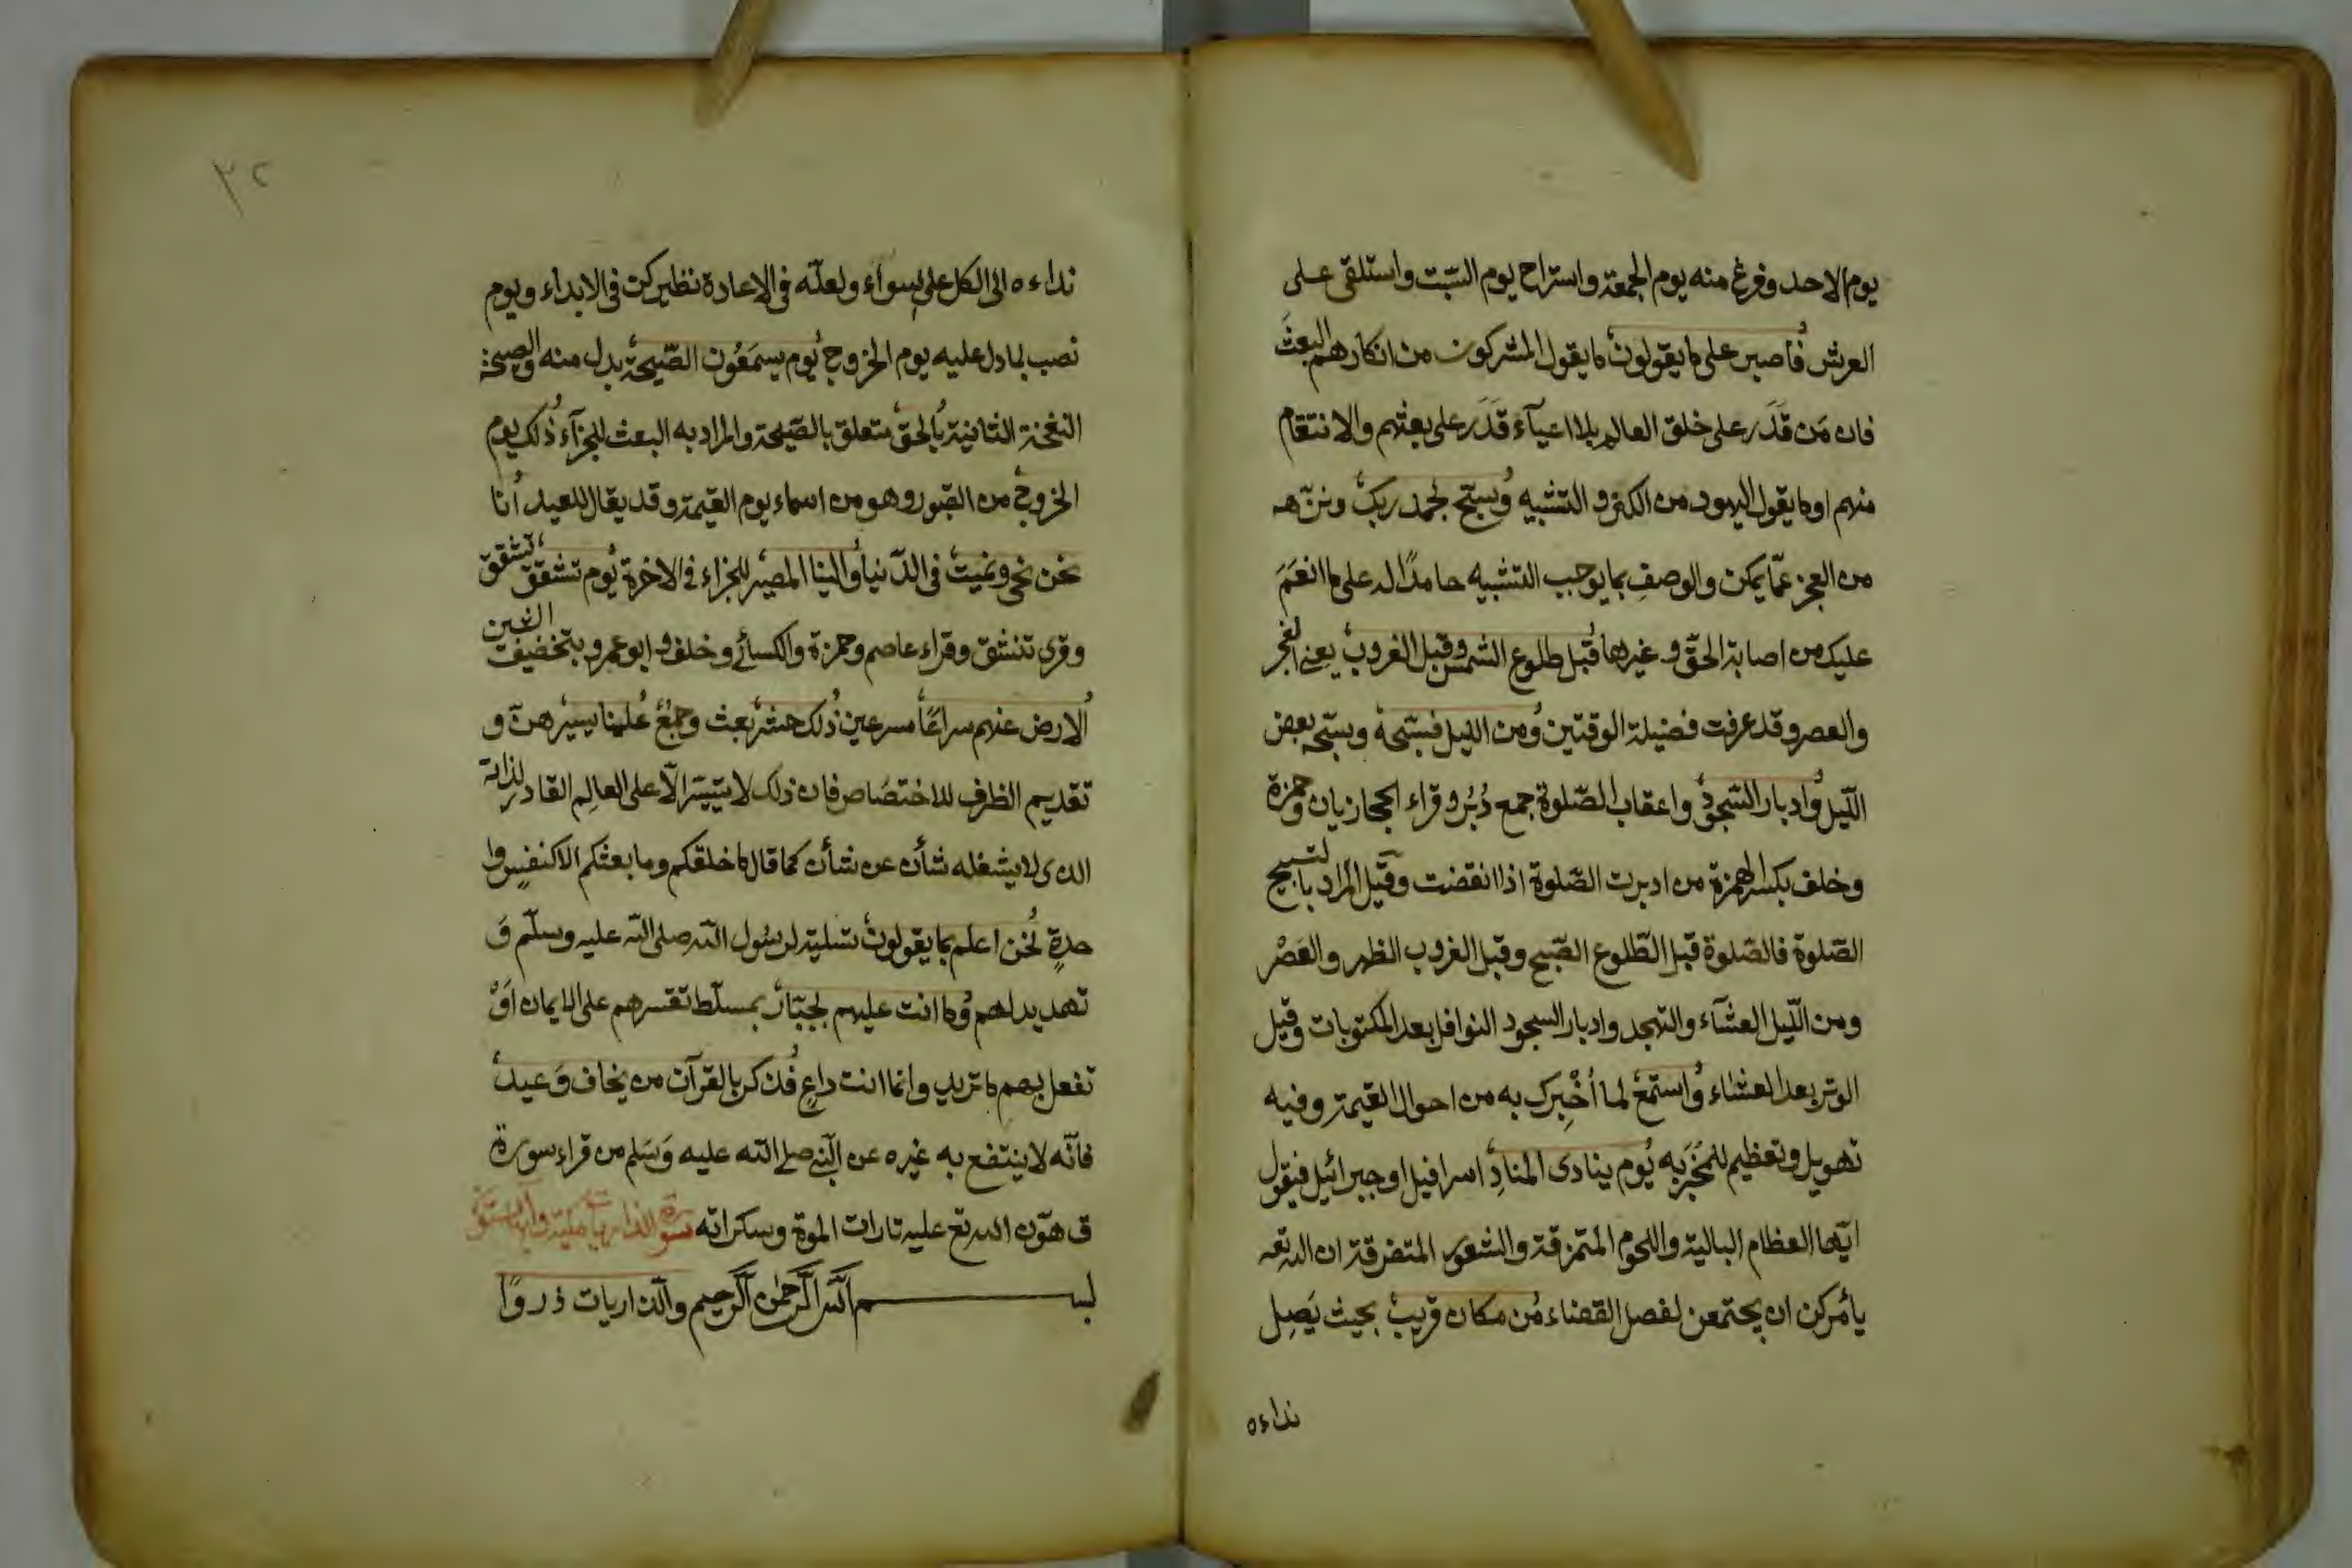 يوم الاحد وفرغ منه يوم الجمعة واستراح يوم السبت واستلقى على
العرش فاصبر على ما يقولون ما يقول المشركون من انكارهم البعث
فان مَن قَدَرَ على خلق العالم بلا اعيآء قَدَرَ على بعثهم والانتقام
منهم او ما يقول اليهود من الكفر و التشبيه وسبّح بحمد ربك ونزّهه
من العجز عمّا يمكن والوصف بما يوجب التشبيه حامدًا له على ما انعَمَ
عليك من اصابة الحقّ و غيرها قبل طلوع الشمس وقبل الغروب يعنى الفجر
والعصر وقد عرفت فضيلة الوقتين ومن الليل فسبّحه وسبّحه بعض
اللّيل وادبار السّجود واعقاب الصّلوة جمع دُبُر وقراء الحجازيان وحمزة
وخلف بكسر الهمزة من ادبرت الصّلوة اذا انقضت وقيل المراد بالتسبيح
الصّلوة فالصّلوة قبل الطّلوع الصّبح وقبل الغروب الظهر والعَصْر
ومن اللّيل العشآء والتهجد وادبار السجود النوافل بعد المكتوبات وقيل
الوتر بعد العشاء واستمع لما اُخْبِرك به من احوال القيمة وفيه
تهويل وتعظيم للمُخْبَر به يوم ينادى المنادِ اسرافيل او جبرائيل فيقول
ايّها العظام البالية واللحوم المتمزقة والشعور المتفرقة ان الله تعه
يأمركن ان يجتمعن لفصل القضاء من مكان قريب بحيث يَصِل
نداءه
٣٢
نداءه الى الكل على سواء ولعلّه فى الاعادة نظير كن فى الابداء ويوم
نصب بما دل عليه يوم الخروج يوم يسمَعُون الصّيحة بدل منه والصيحة
النفخة الثانية بالحق متعلق بالصّيحة والمراد به البعث للجزآء ذلك يوم
الخروج من القبور وهو من اسماء يوم القيمة وقد يقال للعيد انا
نحن نحيى ونميت فى الدّنيا والينا المصير للجزاء فى الاخرة يوم تشقق تتشقق
وقرى تنشق وقراء عاصم وحمزة والكسائي وخلف و ابو عمرو بتخفيف الشين
الارض عنهم سراعًا مسرعين ذلك حشر بعث وجمع علينا يسير هيّن و
تقديم الظرف للاختصَاص فان ذلك لا يتيسّر الّا على العالِم القادر لذاته
الذى لا يشغله شأن عن شأن كما قال ما خلقكم وما بعثكم الا كنفسٍ وا
حدةٍ نحن اعلم بما يقولون تسلية لرسُول الله صلى الله عليه وسلّم وَ
تهديد لهم وما انت عليهم بجبّار بمسلّط تقسرهم على الايمان اَوْ
تفعل بهم ما تريد وانما انت داعٍ فذكر بالقرآن من يخاف وَعيد
فانّه لا ينتفع به غيره عن النّبي صلى الله عليه وَسَلم من قراء سورة
ق هوّن الله تع عليه تارات الموة وسكراته سورة الذاريات مكية وآيها ستون
بسم الله الرّحمٰن الرّحيم والذاريات ذروًا